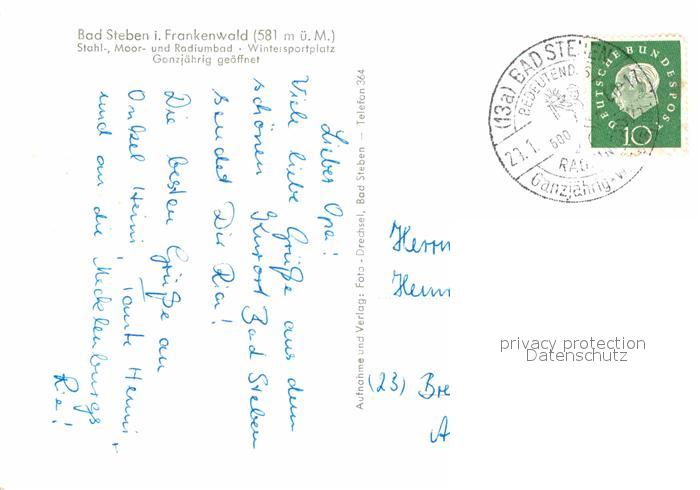 Bad Steben i. Frankenwald (581 m ü. M.)
Stahl-, Moor- und Radiumbad · Wintersportplatz
Ganzjährig geöffnet
Lieber Opa!
Viele liebe Grüße aus dem
schönen Kurort Bad Steben
sendet Dir Ria!
Die besten Grüße an
Onkel Heini, Tante Henni +
und an die Mecklenburgs
Ria!
Aufnahme und Verlag: Foto-Drechsel, Bad Steben — Telefon 364
(13a) BAD STEBEN
BEDEUTEND
600
RAD
Ganzjährig
DEUTSCHE BUNDESPOST
10
Herrn
(23) Bre
A
privacy protection
Datenschutz